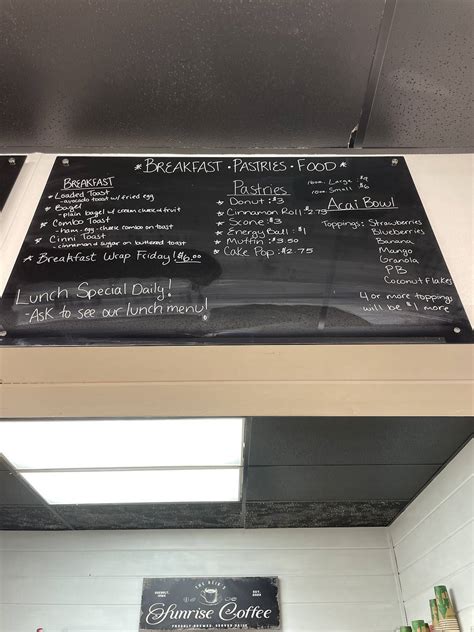 *BREAKFAST · PASTRIES · FOOD*
BREAKFAST
* Loaded Toast
-avocado toast w/ fried egg
* Bagel
-plain bagel w/ cream cheese & fruit
* Combo Toast
-ham-egg-cheese combo on toast
* Cinni Toast
-cinnamon & sugar on buttered toast
* Breakfast Wrap Friday! $6.00
Lunch Special Daily!
-Ask to see our lunch menu!
Pastries
* Donut: $3
* Cinnamon Roll: $2.75
* Scone: $3
* Energy Ball: $1
* Muffin: $3.50
* Cake Pop: $2.75
16oz. Large $9
10oz Small $6
Acai Bowl
Toppings: Strawberries
Blueberries
Banana
Mango
Granola
PB
Coconut Flakes
4 or more toppings
will be $1 more
Sunrise Coffee